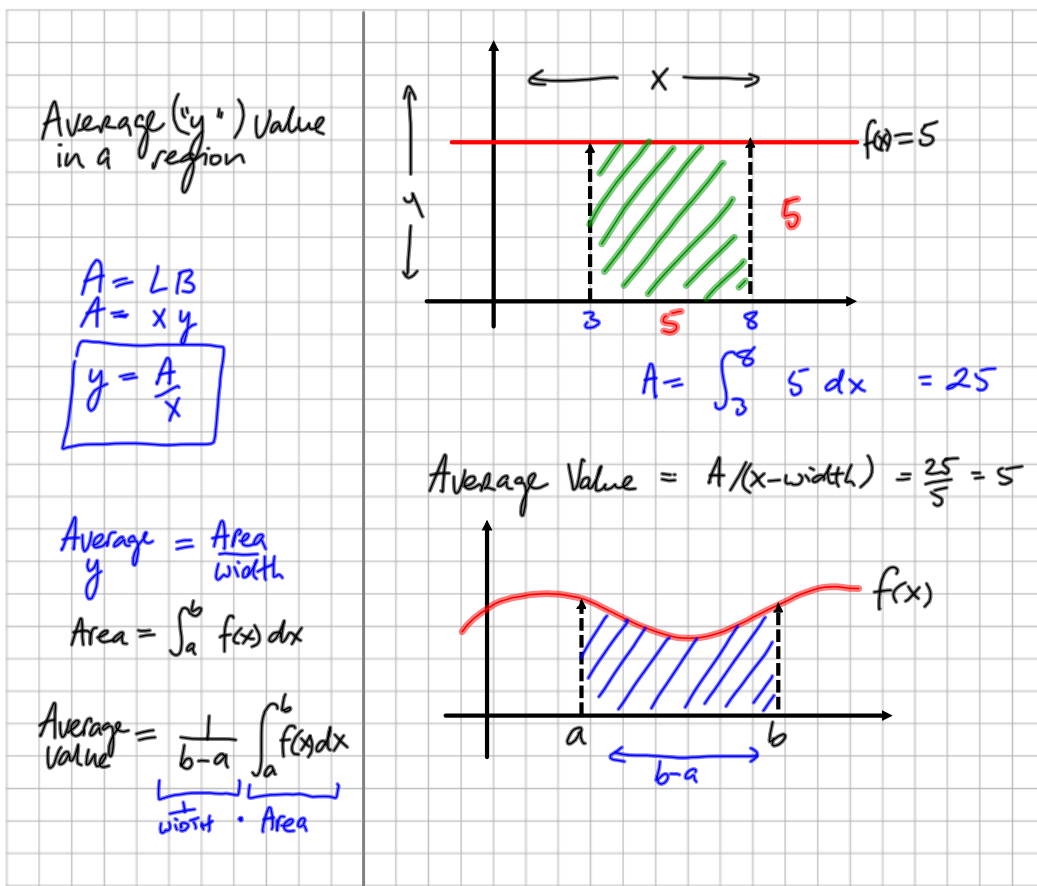 Average ("y") Value
in a region
A = LB
A = xy
y = A/x
Average y = Area/width
Area = ∫_a^b f(x) dx
Average Value = 1/(b-a) ∫_a^b f(x)dx
1/WIDTH · Area
x
y
f(x) = 5
5
3
5
8
A = ∫_3^8 5 dx = 25
Average Value = A/(x-width) = 25/5 = 5
f(x)
a
b
b-a